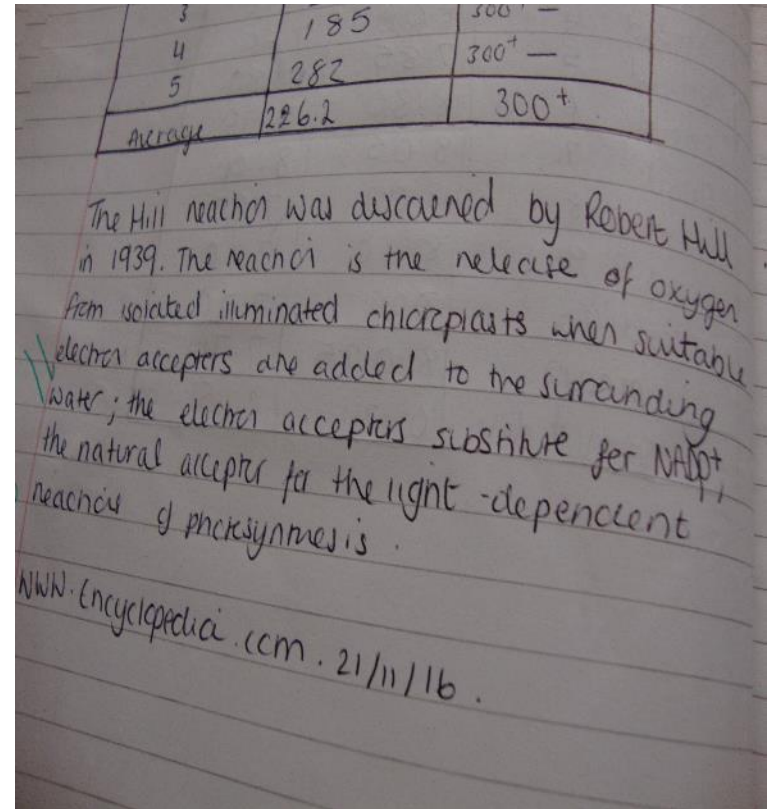 3 185 300+ —
4 300+ —
5 282
Average 226.2 300+
The Hill reaction was discovered by Robert Hill
in 1939. The reaction is the release of oxygen
from isolated illuminated chloroplasts when suitable
electron accepters are added to the surrounding
water; the electron accepters substitute for NADP+,
the natural accepter for the light-dependent
reactions of photosynthesis.
WWW.Encyclopedia.com. 21/11/16.